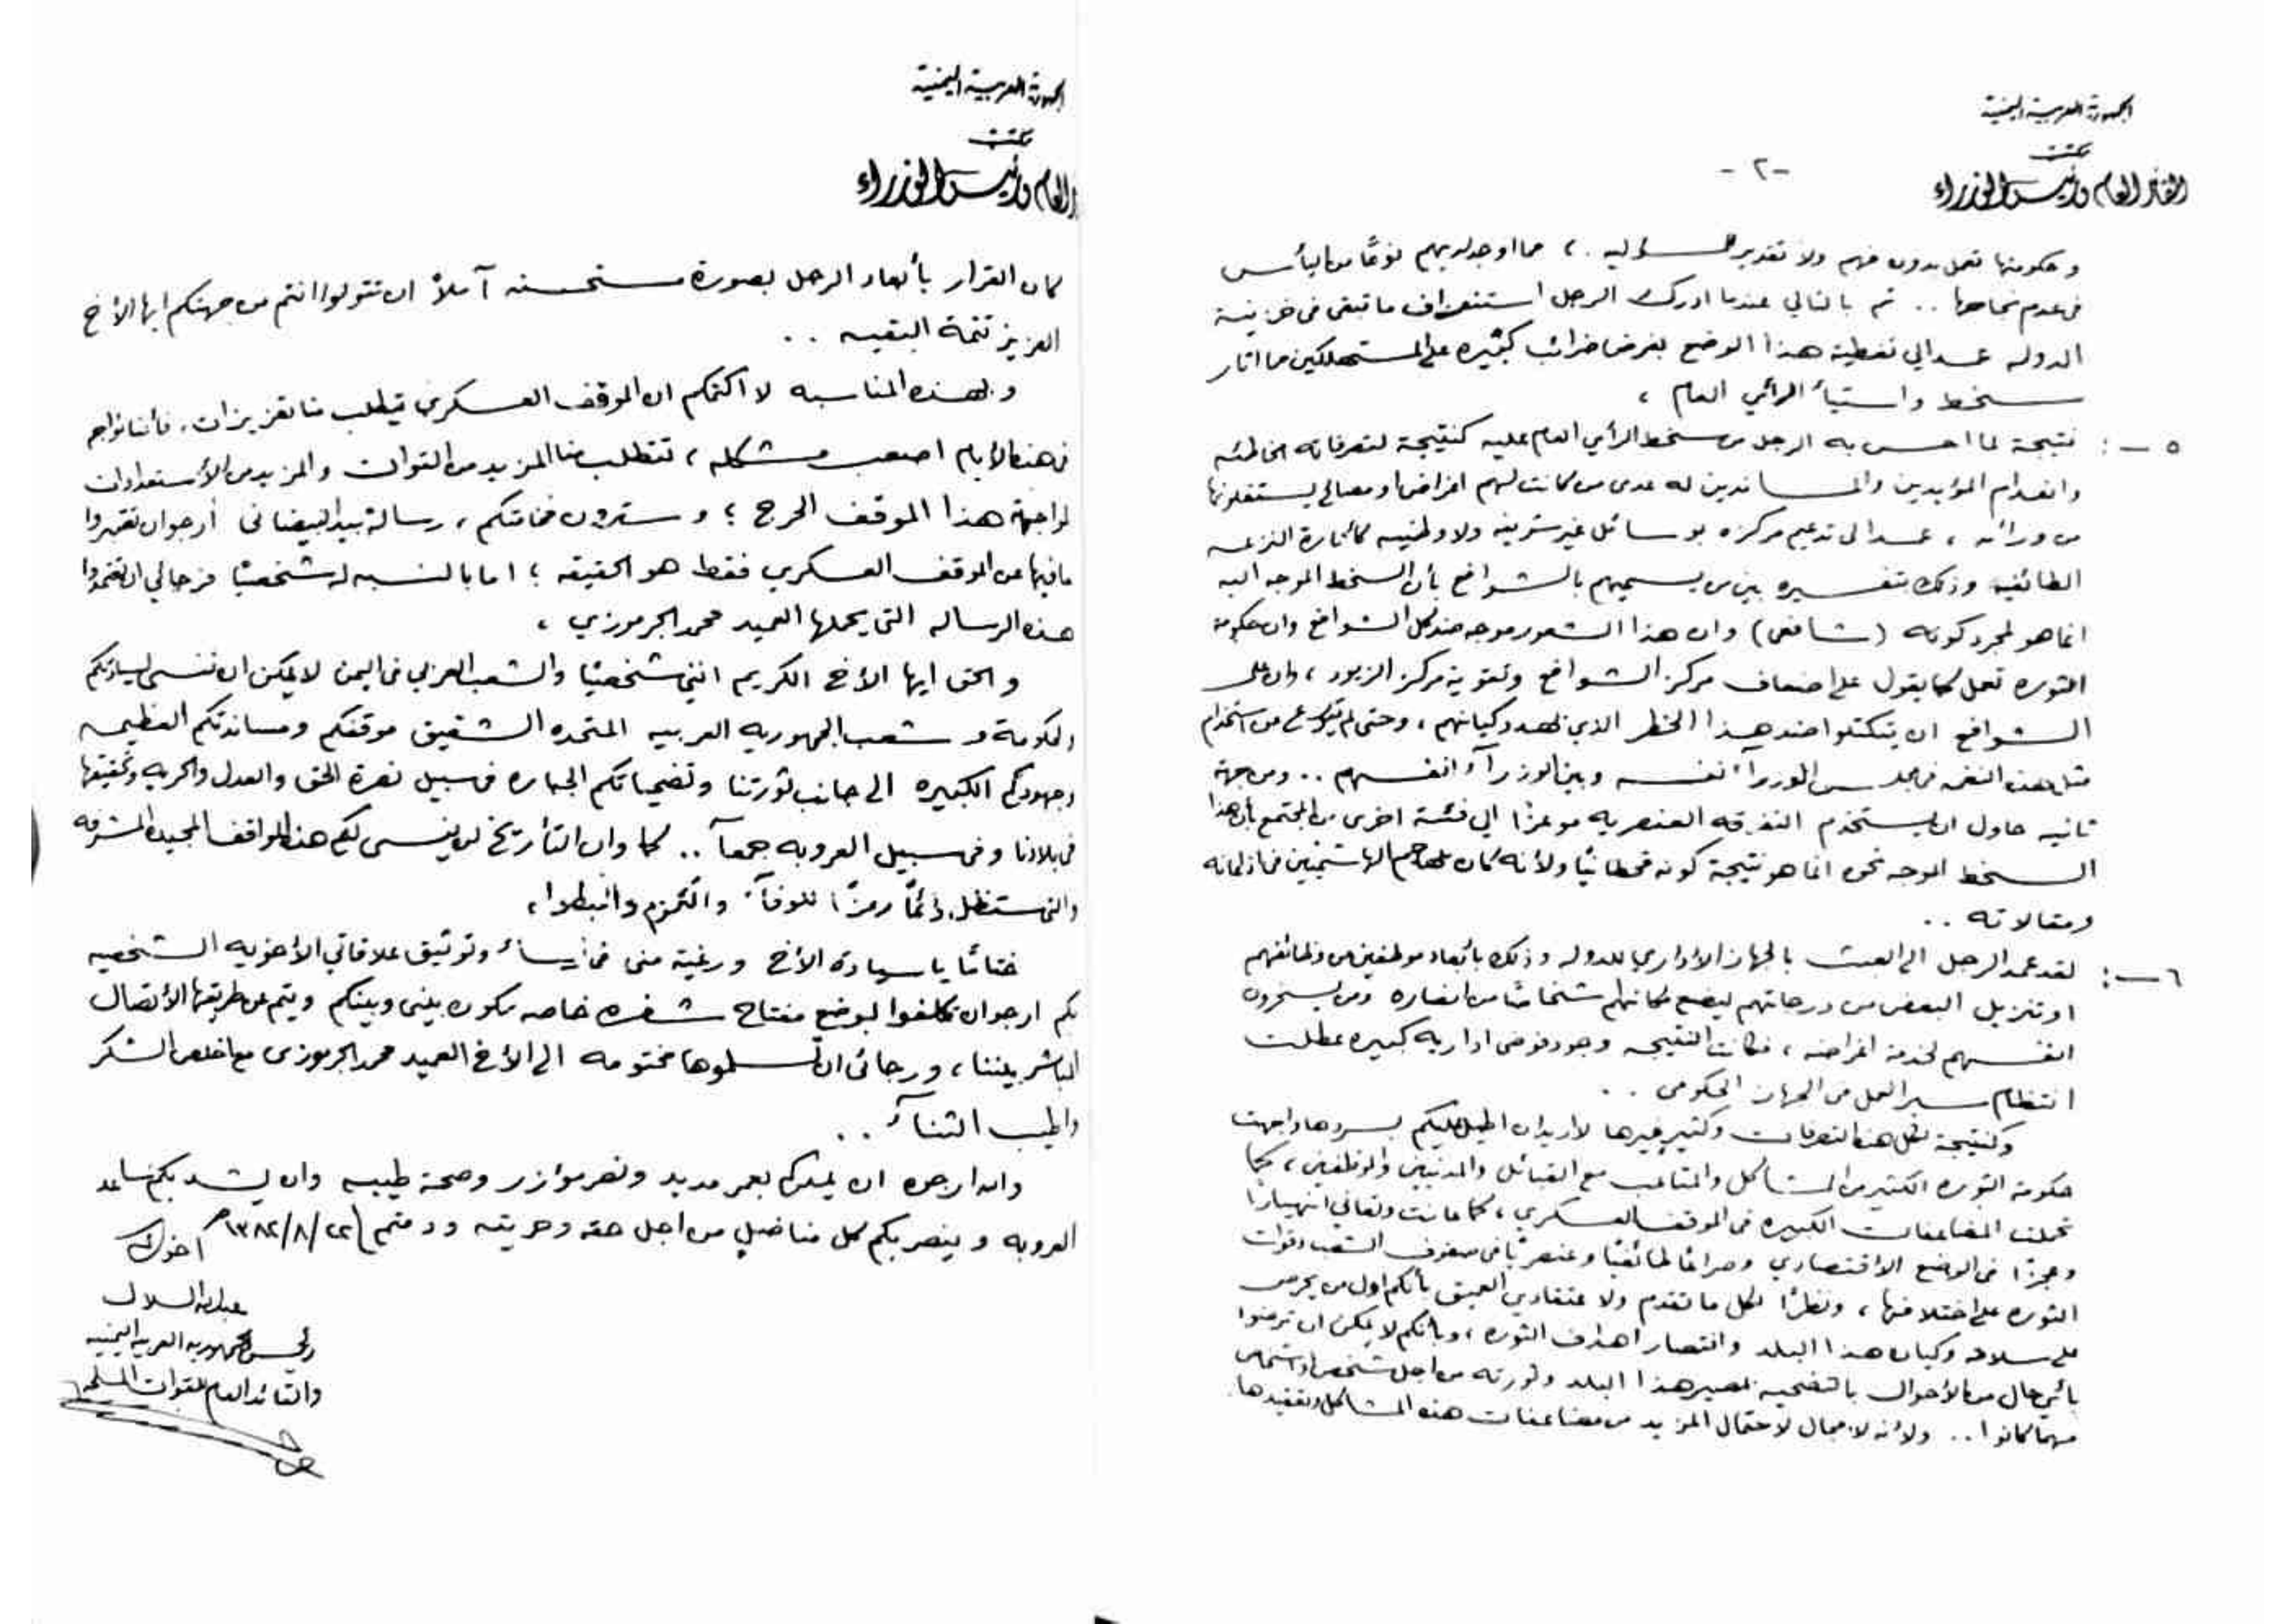 الجمهورية العربية اليمنية
مكتب
القائد العام ورئيس الوزراء
-٢-
وحكومتها تعمل بدون فهم ولا تقدير للمسؤليه .، مما اوجد لديهم نوعًا من اليأس
في عدم نجاحها .. ثم بالتالي عندما ادرك الرجل استنزاف ما تبقى في خزينة
الدوله عمد الي تغطية هذا الوضع بفرض ضرائب كثيره على المستهلكين مما اثار
سخط واستيأ الرأي العام ،
٥ -: نتيجة لما احس به الرجل من سخط الرأي العام عليه كنتيجة لتصرفاته الخاطئه
وانعدام المؤيدين والمساندين له عدى من كانت لهم اغراض او مصالح يستغلونها
من ورائه ، عمد الى تدعيم مركزه بوسائل غير شريفه ولا وطنيه كأثارة النزعه
الطائفيه وذلك بتفسيره بين من يسميهم بالشوافع بأن السخط الموجه اليه
انما هو لمجرد كونه (شافعي) وان هذا الشعور موجه ضد كل الشوافع وان حكومة
الثوره تعمل كما يقول على اضعاف مركز الشوافع وتقوية مركز الزيود ، وان على
الشوافع ان يتكتلوا ضد هذا الخطر الذي يهدد كيانهم ، وحتى لم يتورع من استخدام
مثل هذه النغمه في مجلس الوزرآء نفسه وبين الوزرآء انفسهم .. ومن جهة
ثانيه حاول ان يستخدم التفرقه العنصريه موعزًا الي فئة اخرى من المجتمع بأن هذا
السخط الموجه نحوه انما هو نتيجة كونه قحطانيًا ولأنه كان يهاجم الهاشميين في اذاعاته
ومقالاته ..
٦ -: لقد عمد الرجل الى العبث بالجهاز الاداري للدوله وذلك بأبعاد موظفين من وظائفهم
او تنزيل البعض من درجاتهم ليضع مكانهم اشخاصًا من انصاره ومن يسخرون
انفسهم لخدمة اغراضه ، فكانت النتيجه وجود فوضى اداريه كبيره عطلت
انتظام سير العمل من الجهاز الحكومي ..
وكنتيجة لكل هذه التصرفات وكثير غيرها لا اريد ان اطيل عليكم بسردها واجهت
حكومة الثوره الكثير من المشاكل والمتاعب مع القبائل والمدنيين والموظفين ، كما
تحملت المضاعفات الكبيره في الموقف العسكري ، كما عانت وتعاني انهيارًا
وعجزًا في الوضع الاقتصادي وصراعًا طائفيًا وعنصريًا في صفوف الشعب وقوات
الثوره على اختلافها ، ونظرًا لكل ما تقدم ولا عتقادي العميق بأنكم اول من يحرص
على سلامة وكيان هذا البلد وانتصار اهداف الثوره ، وبأنكم لا يمكن ان ترضوا
بأي حال من الأحوال بالتضحيه بمصير هذا البلد وثورته من اجل شخص او اشخاص
مهما كانوا .. ولأنه لا مجال لاحتمال المزيد من مضاعفات هذه المشاكل وتعقيدها.
الجمهورية العربية اليمنية
مكتب
العام ورئيس الوزراء
كان القرار بأبعاد الرجل بصورة مستحسنه آملاً ان تتولوا انتم من جهتكم ايها الأخ
العزيز تتمة البقيه ..
وبهذه المناسبه لا اكتمكم ان الموقف العسكري يتطلب منا تعزيزات ، فأننا نواجه
في هذه الأيام اصعب مشكله ، تتطلب منا المزيد من القوات والمزيد من الأستعدادات
لمواجهة هذا الموقف الحرج ؛ وسترون فخامتكم ، رسالة بيد البيضاني أرجو ان تعتبروا
ما فيها عن الموقف العسكري فقط هو الحقيقه ؛ اما بالنسبه له شخصيًا فرجائي ان تعتمدوا
هذه الرساله التي يحملها العميد محمد الجرموزي ،
والحق ايها الأخ الكريم انني شخصيًا والشعب العربي في اليمن لا يمكن ان ننسى لسيادتكم
ولحكومة وشعب الجمهوريه العربيه المتحده الشقيق موقفكم ومساندتكم العظيمه
وجهودكم الكبيره الى جانب ثورتنا وتضحياتكم الجباره في سبيل نصرة الحق والعدل والحريه وتحقيقها
في بلادنا وفي سبيل العروبه جمعآ .. كما وان التأريخ لن ينسى لكم هذه المواقف المجيده المشرفه
والتي ستظل دائمًا رمزًا للوفآء والكرم والبطولة،
ختامًا يا سيادة الأخ ورغبة مني في ارساء وتوثيق علاقاتي الأخويه الشخصيه
بكم ارجو ان تكلفوا بوضع مفتاح شفره خاصه تكون بيني وبينكم ويتم عن طريقها الأتصال
المباشر بيننا ، ورجائي ان تسلموها مختومه الى الأخ العميد محمد الجرموزي مع اخلص الشكر
واطيب الثنآء ..
والله ارجوه ان يمدكم بعمر مديد ونصر مؤازر وصحة طيبه وان يشد بكم ساعد
العروبه وينصر بكم كل مناضل من اجل حقه وحريته ودمتم ٢٢/٨/١٣٨٢هـ
اخوك
عبدالله السلال
رئيس الجمهوريه العربيه اليمنيه
والقائد العام للقوات المسلحه